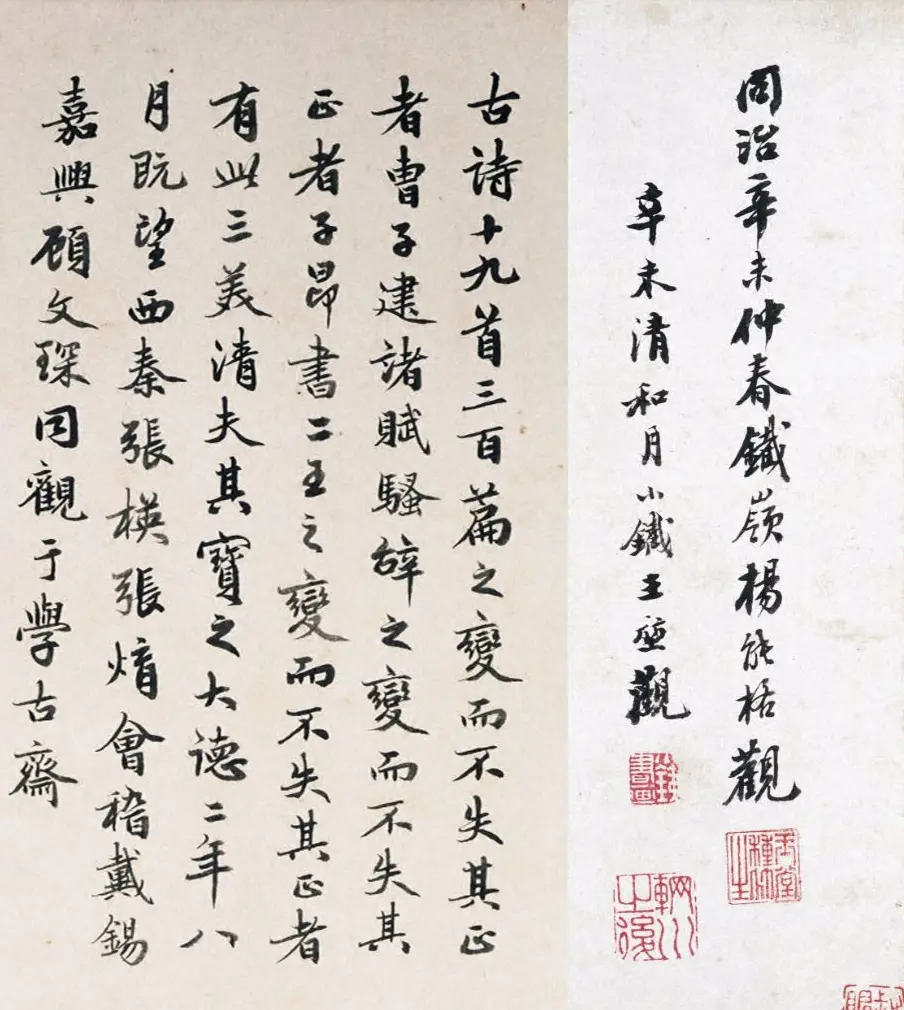 同治辛未仲春鐵嶺楊能格觀
辛未清和月小鐵王觀
輞川之後
古詩十九首三百篇之變而不失其正
者曹子建諸賦騷辭之變而不失其
正者子昂書二王之變而不失其正者
有此三美清夫其寶之大德二年八
月既望西秦張楧張焴會稽戴錫
嘉興顧文琛同觀于學古齋